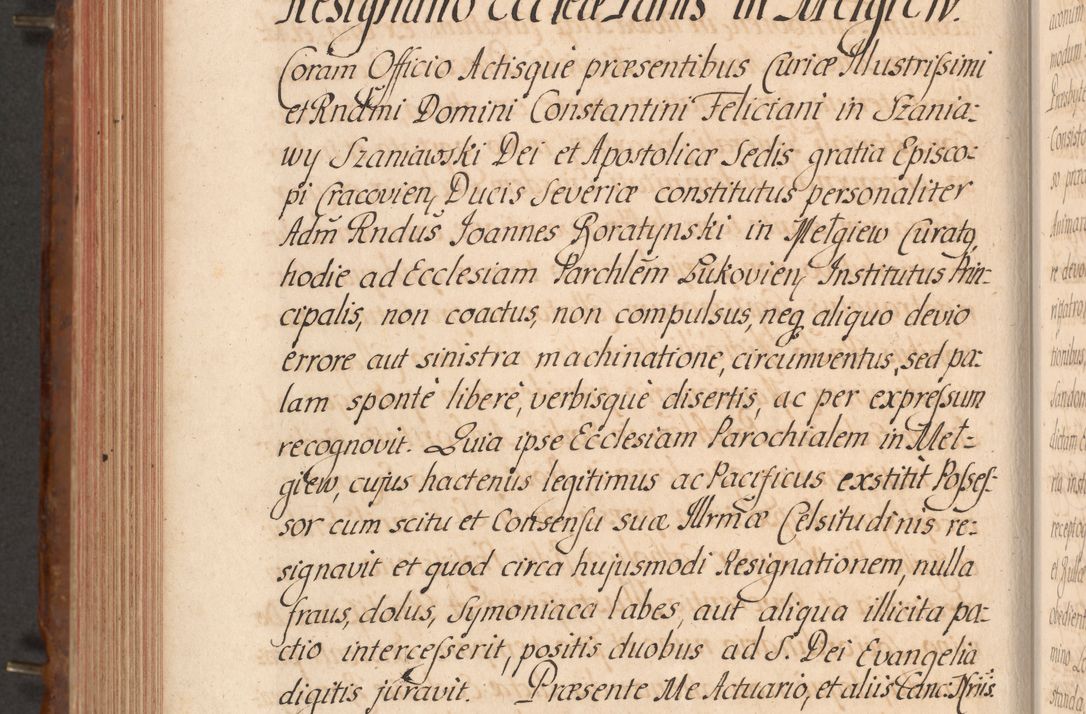 Resignatio Ecclesiae Parlis in Mełgiew.
Coram Officio Actisque præsentibus Curiæ Illustrissimi
et Rndmi Domini Constantini Feliciani in Szania-
wy Szaniawski Dei et Apostolicæ Sedis gratia Episco-
pi Cracovien, Ducis Severiæ constitutus personaliter
Adm̃ Rndus̃ Joannes Boratynski in Mełgiew Curatq,
hodie ad Ecclesiam Parchlem̃ Lukovien, Institutus Prin-
cipalis, non coactus, non compulsus, neq aliquo devio
errore aut sinistra machinatione, circumventus, sed pa-
lam spontè liberè, verbisquè disertis, ac per expressum
recognovit. Quia ipse Ecclesiam Parochialem in Meł-
giew, cujus hactenus legitimus ac Pacificus exstitit Posses-
sor cum scitu et Consensu suæ Illrm̃æ Celsitudinis re-
signavit et quod circa hujusmodi Resignationem, nulla
fraus, dolus, Symoniaca labes, aut aliqua illicita pa-
ctio intercesserit, positis duobus ad S. Dei Evangelia
digitis juravit. Præsente Me Actuario, et aliis Canc: Nriis.